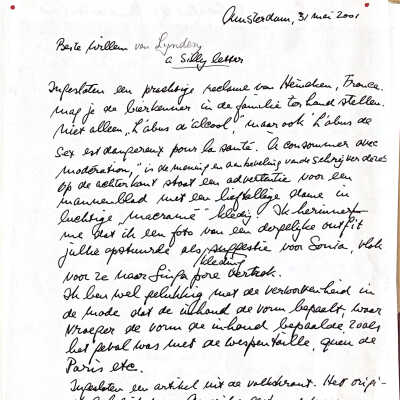 Amsterdam, 31 mei 2001
Beste Willem van Lynden,
a silly letter
Ingesloten een prachtige reclame van Heineken, France.
mag je de bierkenner in de familie ter hand stellen.
niet alleen "L'abus d'alcool", maar ook L'abus de
Sex est dangereux pour la santé. A consommer avec
modération," is de mening en aanbeveling van de schrijver dezes.
Op de achterkant staat een advertentie voor een
mannenblad met een lieftallige dame in
luchtige "macramé" kledij. Ik herinner
me dat ik een foto van een dergelijke outfit
jullie opstuurde als suggestie voor Sonia, vlak
kleding
voor ze naar Singapore vertrok.
Ik ben wel gelukkig met de verworvenheid in
de mode dat de inhoud de vorm bepaalt, waar
vroeger de vorm de inhoud bepaalde, zoals
het geval was met de wespentaille, queu de
Paris etc.
Ingesloten en artikel uit de Volkskrant. Het origi-